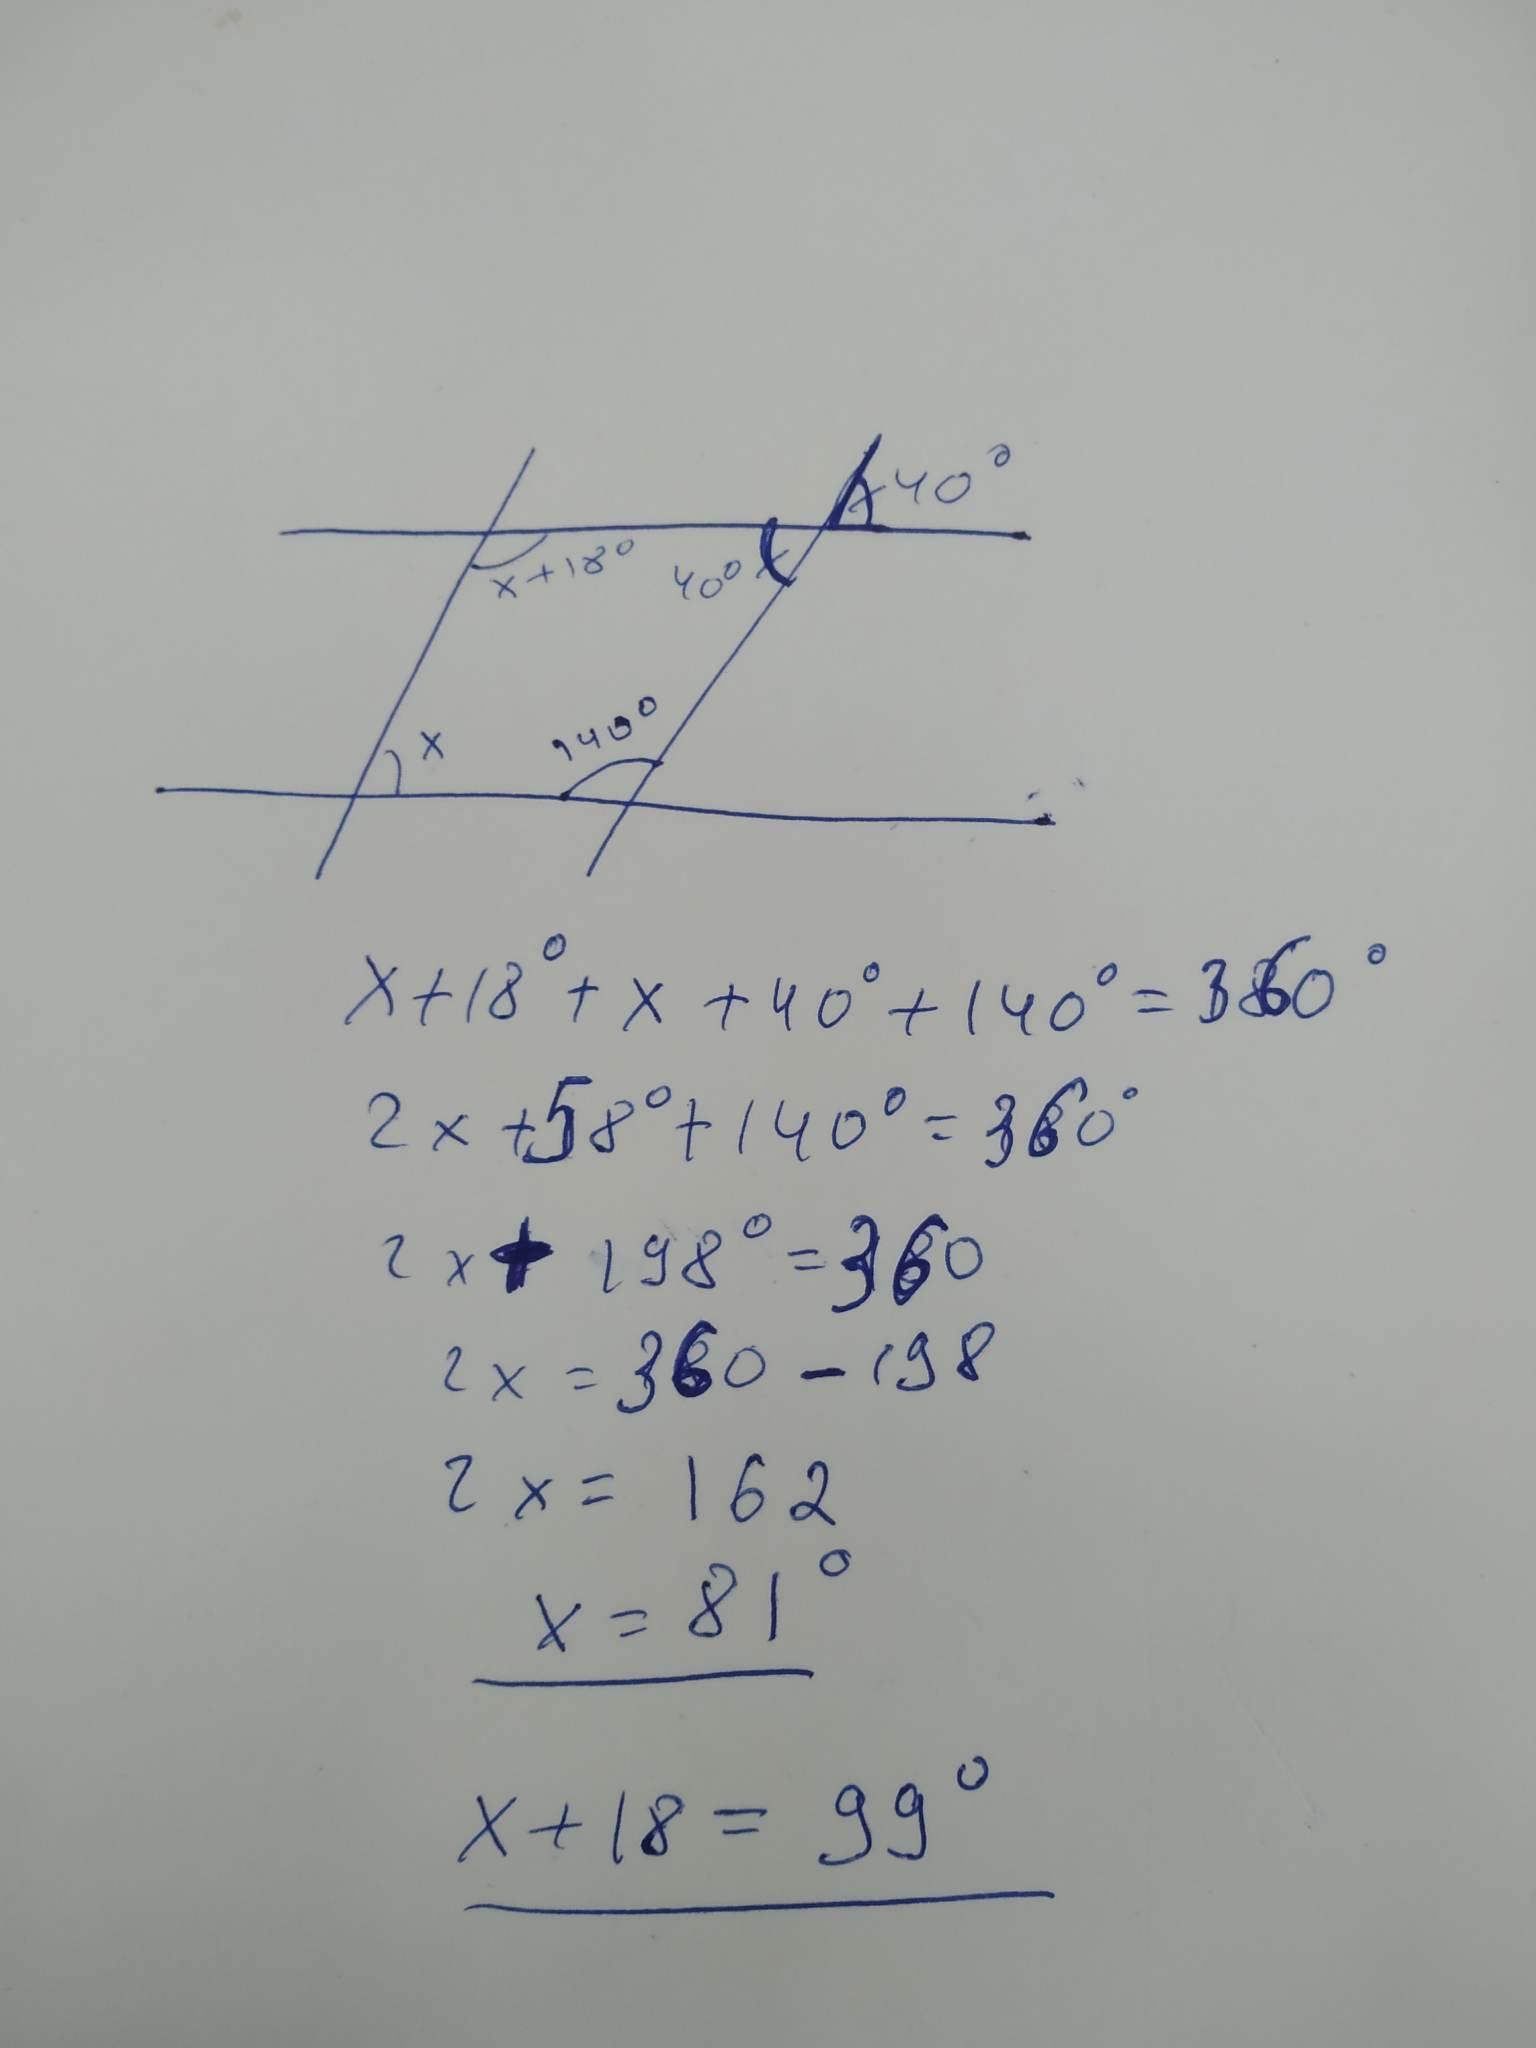 40°
x+18°
40°
x
140°
x+18°+x+40°+140°=360°
2x+58°+140°=360°
2x+198°=360
2x=360-198
2x=162
x=81°
x+18=99°